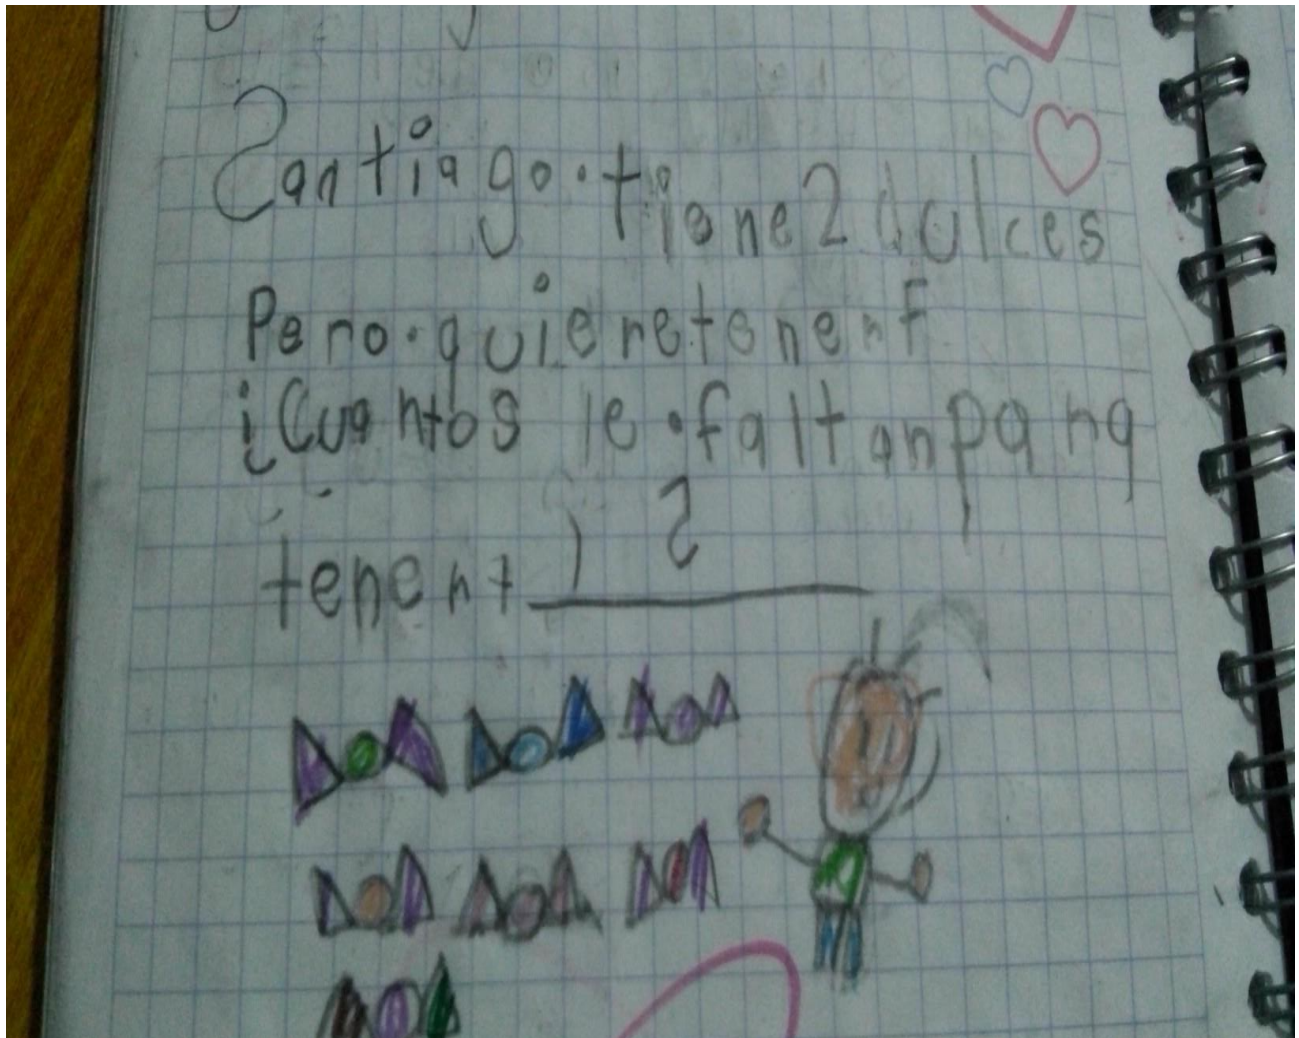 Santiago.tiene 2 dulces
Pero.quiere tener 7
¿Cuantos le.faltan para
tener 7 ?